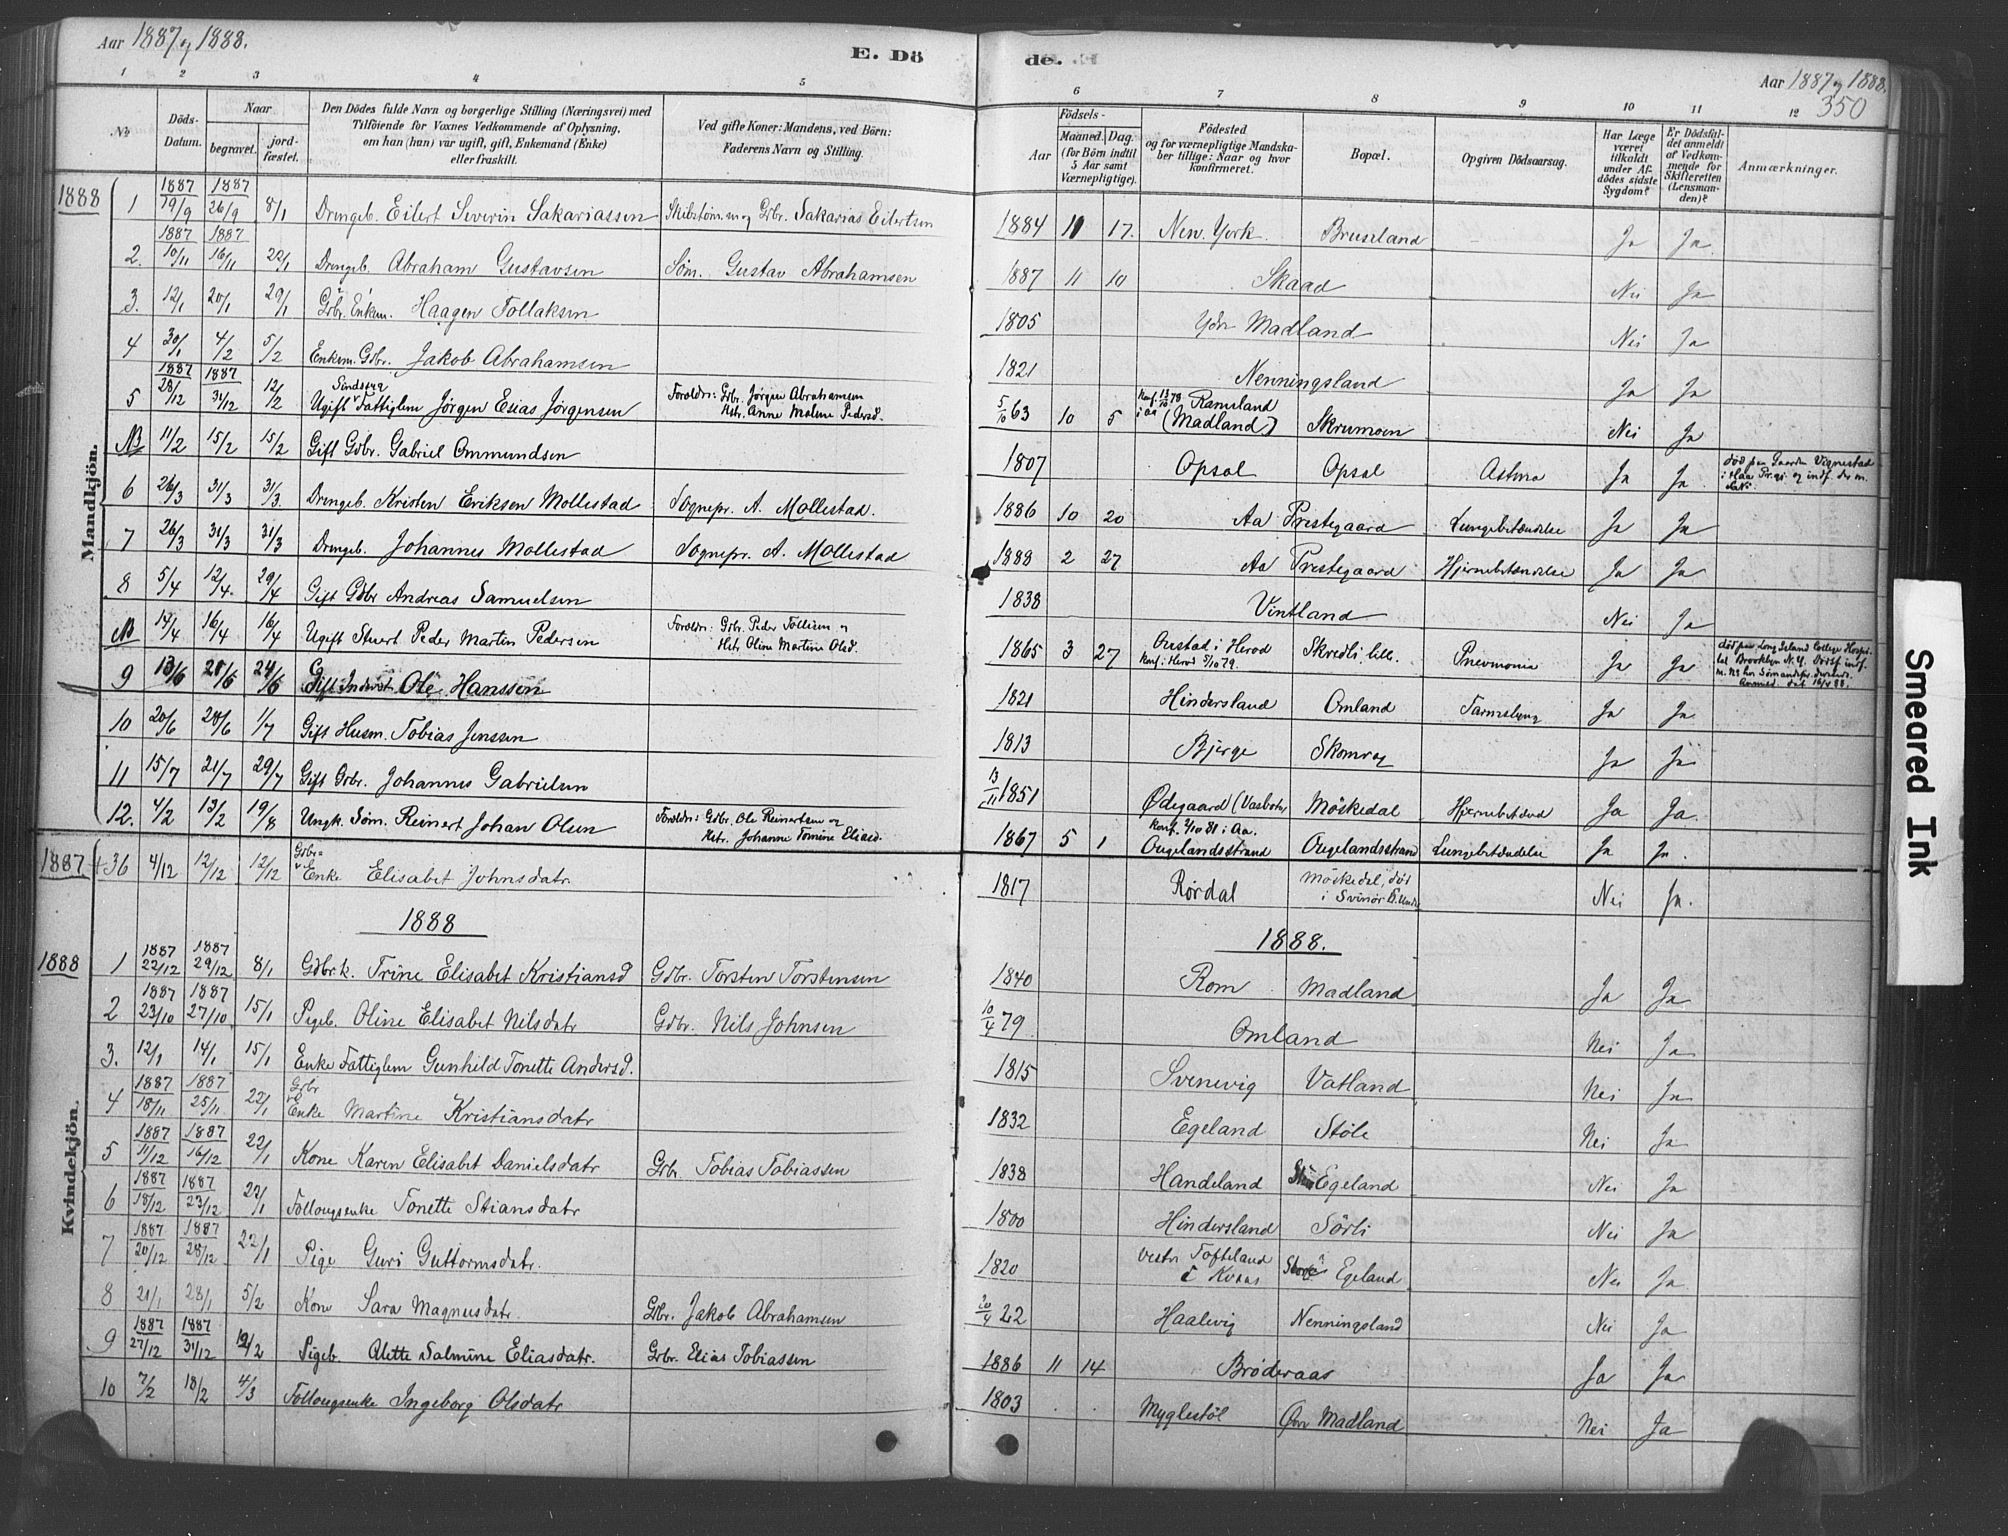 Aar 1887 og 1888.
E. Döde.
Aar 1887 og 1888.
350
1 2 3 4 5 6 7 8 9 10 11 12
No
Döds-Datum.
Naar
begravet.
jordfæstet.
Den Dödes fulde Navn og borgerlige Stilling (Næringsvei) med
Tilföiende for Voxnes Vedkommende af Oplysning,
om han (hun) var ugift, gift, Enkemand (Enke)
eller fraskilt.
Ved gifte Koner: Mandens, ved Börn:
Faderens Navn og Stilling.
Födsels-
Aar
Maaned. Dag.
(for Börn indtil
5 Aar samt
Værnepligtige).
Födested
og for værnepligtige Mandskaber tillige: Naar og hvor
konfirmeret.
Bopæl.
Opgiven Dödsaarsag.
Har Læge
været
tilkaldt
under Afdödes sidste
Sygdom?
Er Dödsfaldet anmeldt
af Vedkommende for
Skifteretten
(Lensmanden)?
Anmærkninger.
Mandkjön.
1888 1 1887 19/9 1887 26/9 8/1 Drengeb. Eilert Severin Sakariassen Skibstøm.m og Gbr. Sakarias Eilertsen 1884 11 17. New York. Bruseland Ja Ja.
2. 1887 10/11 1887 16/11 22/1 Drengeb. Abraham Gustavsen Søm. Gustav Abrahamsen 1887 11 10 Skaad Nei Ja
3. 12/1 20/1 29/1 Gbr. Enkem. Haagen Tollaksen 1805 Ydr Madland Nei Ja
4 30/1 4/2 5/2 Enkem. Gdbr. Jakob Abrahamsen 1821 Nenningsland Ja Ja
5 1887 28/12 1887 31/12 12/2 Ugift Sindssyg Fattiglem Jørgen Esias Jørgensen Forældre: Gbr. Jørgen Abrahamsen Hstr. Anne Malene Pedersd. 5/10 63 10 5 Konf. 13/10 78 i Aa Ramsland (Madland) Skrumoen Nei Ja
NB 11/2 15/2 15/2 Gift Gdbr. Gabriel Ommundsen 1807 Opsal Opsal Astma Ja Ja. død paa Gaarden Vignestad i Haa Pr.gj. og indf. der m. No
6 26/3 31/3 31/3. Drengeb. Kristen Eriksen Mollestad Sognepr. A. Mollestad. 1886 10 20 Aa Prestegaard Lungebetændelse Ja Ja
7 26/3 31/3 31/3 Drengeb. Johannes Mollestad Sognepr. A. Mollestad 1888 2 27 Aa Prestegaard Hjernebetændelse Ja Ja
8 5/4 12/4. 29/4 Gift Gdbr Andreas Samuelsen 1838 Vintland Nei Ja
NB 14/4 16/4 16/4 Ugift Stuert Peder Martin Pedersen Forældre: Gdbr. Peder Tollisen og Hstr. Oline Martine Olsd. 1865 3 27 Øustad i Herod konf. i Herod 5/10 79. Skredli, lille. Pnevmonia Ja Ja død paa Long Island College Hospital Brooklyn N.Y.
9 13/6 21/6 24/6 Gift Inderst Ole Hanssen 1821 Hindersland Omland Tarmslyng Ja Ja
10 20/6 28/6 1/7 Gift Husm. Tobias Jenssen 1813 Bjerge Skomrag Ja Ja
11 15/7 21/7 29/7 Gift Gbr. Johannes Gabrielsen 13/11 1851 Ødegaard (Vasbotn) Møskedal Hjernebetænd Ja Ja.
12. 4/2 13/2 19/8 Ungk. Søm. Reinert Johan Olsen Forældre: Gdbr. Ole Reinertsen og Hstr. Johanne Tomine Eliasd. 1867 5 1 konf. 2/10 81 i Aa. Øugelandsstrand Øugelandsstrand Lungebetændelse Ja Ja.
1887 +36 4/12 12/12 12/12 Gdbr= Enke Elisabet Johnsdatr. 1817 Rørdal Møskedal, død i Svinør Nei Ja.
1888
1888.
Kvindekjön.
1888 1 1887 22/12 1887 29/12 8/1 Gdbrk. Trine Elisabet Kristiansd Gdbr. Torsten Torstensen 1840 Rom Madland Ja Ja
2 1887 23/10 1887 27/10 15/1 Pigeb. Oline Elisabet Nilsdatr Gdbr. Nils Johnsen 10/4 79 Omland Nei Ja
3. 12/1 14/1 15/1 Enke Fattiglem Gunhild Tonette Andersd. 1815 Svenevig Vatland Nei Ja
4 1887 18/11 1887 25/11 22/1 Gbr Enke Martine Kristiansdatr 1832 Egeland Støle Nei Ja
5 1887 11/12 1887 16/12 22/1 Kone Karen Elisabet Danielsdatr Gbr. Tobias Tobiassen 1838 Handeland Egeland Nei Ja
6 1887 18/12 1887 23/12 22/1 Follougsenke Tonette Stiansdatr 1800 Hindersland Sørli Nei Ja
7 1887 20/12 1887 28/12 22/1 Pige Guri Guttormsdatr. 1820 Vestr Tofteland i Kvaas Egeland Nei Ja
8 21/1 28/1 5/2 Kone Sara Magnusdatr. Gbr. Jakob Abrahamsen 20/4 22 Haalevig Nenningsland Nei Ja
9 1887 27/12 1887 31/12 12/2 Pigeb. Alette Salmine Eliasdatr. Gbr. Elias Tobiassen 1886 11 14 Brøderaas Ja Ja
10 7/2 18/2 4/3 Follougsenke Ingeborg Olsdatr 1803 Myglestøl Øvr Madland Nei Ja
Smeared Ink